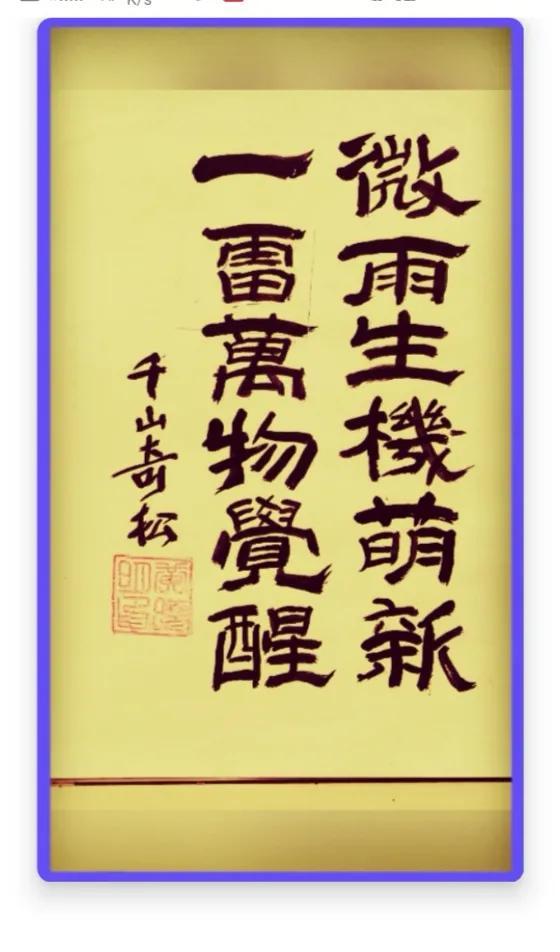 微雨生機萌新
一雷萬物覺醒
千山奇松
K/s